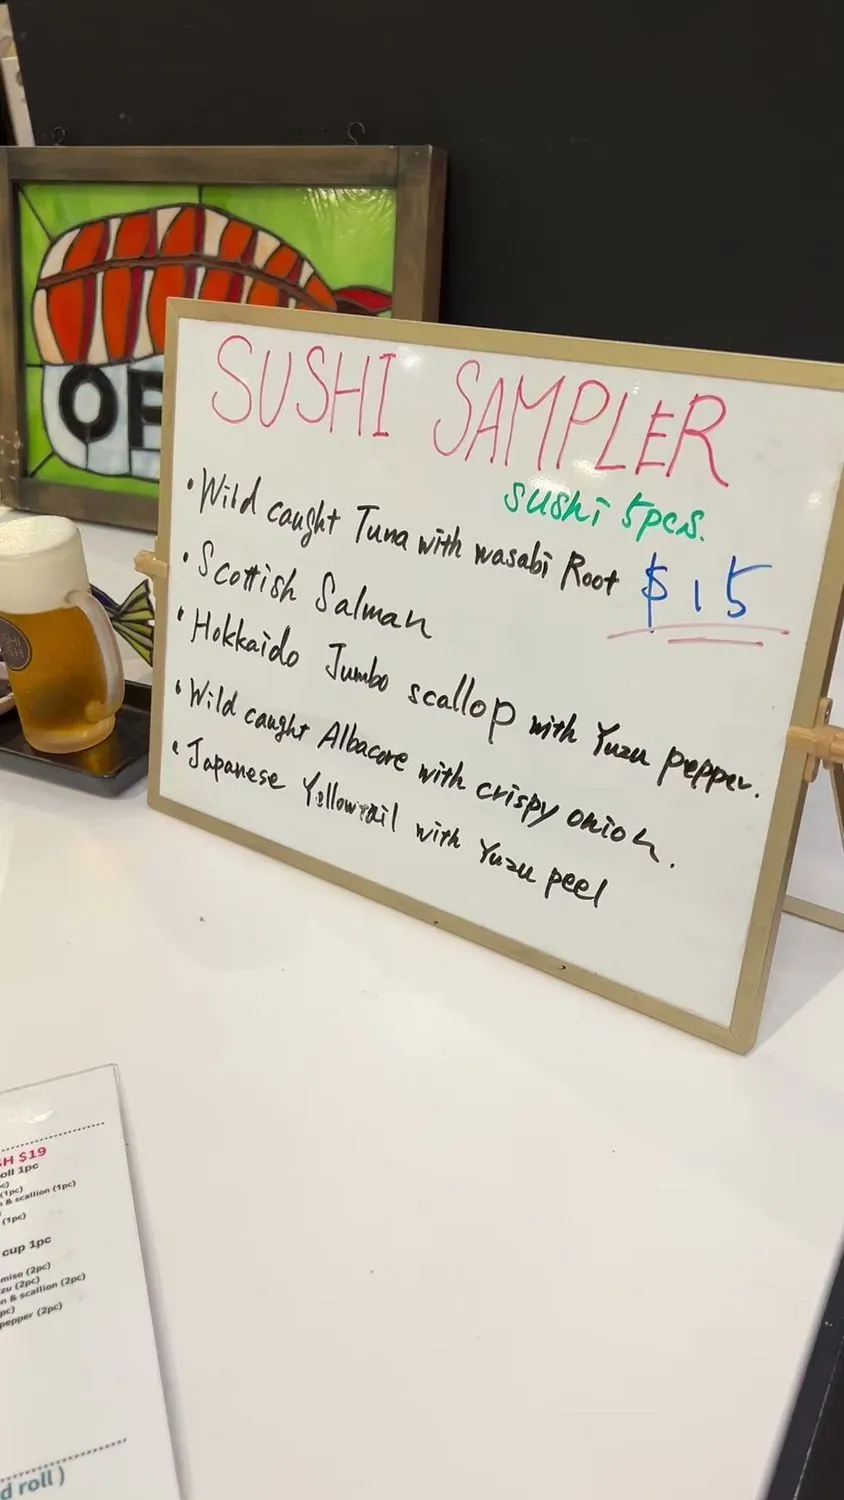 OE
SUSHI SAMPLER
sushi 5pcs.
• Wild caught Tuna with wasabi Root $15
• Scottish Salman
• Hokkaido Jumbo scallop with Yuzu pepper.
• Wild caught Albacore with crispy onion.
• Japanese Yellowtail with Yuzu peel
SH $19
oll 1pc
(1pc)
& scallion (1pc)
(1pc)
cup 1pc
miso (2pc)
zu (2pc)
n & scallion (2pc)
pc)
pepper (2pc)
d roll )